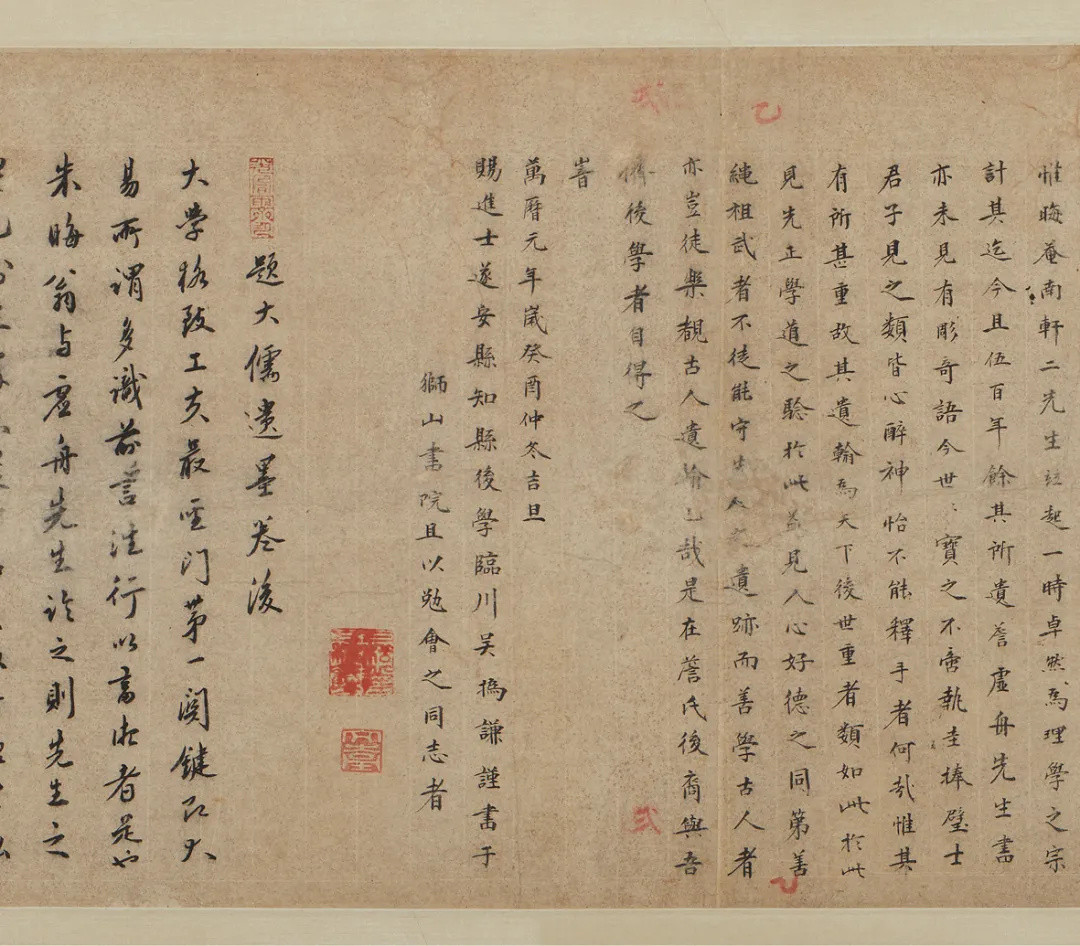 惟晦菴南軒二先生崛起一時卓然為理學之宗
計其迄今且伍百年餘其所遺詹虛舟先生書
亦未見有彫奇語今世〻寶之不啻執圭捧璧士
君子見之類皆心醉神怡不能釋手者何哉惟其
有所甚重故其遺翰為天下後世重者類如此於此
見先正學道之驗於此益見人心好德之同第善
繩祖武者不徒能守古人之遺跡而善學古人者
亦豈徒樂觀古人遺翰已哉是在詹氏後裔與吾
儕後學者自得之
萬曆元年歲癸酉仲冬吉旦
賜進士遂安縣知縣後學臨川吳撝謙謹書于
獅山書院且以勉會之同志者
題大儒遺墨卷後
大學格致工夫最聖門第一関鍵即大
易所謂多識前言往行以畜德者是也
朱晦翁与虛舟先生論之則先生之